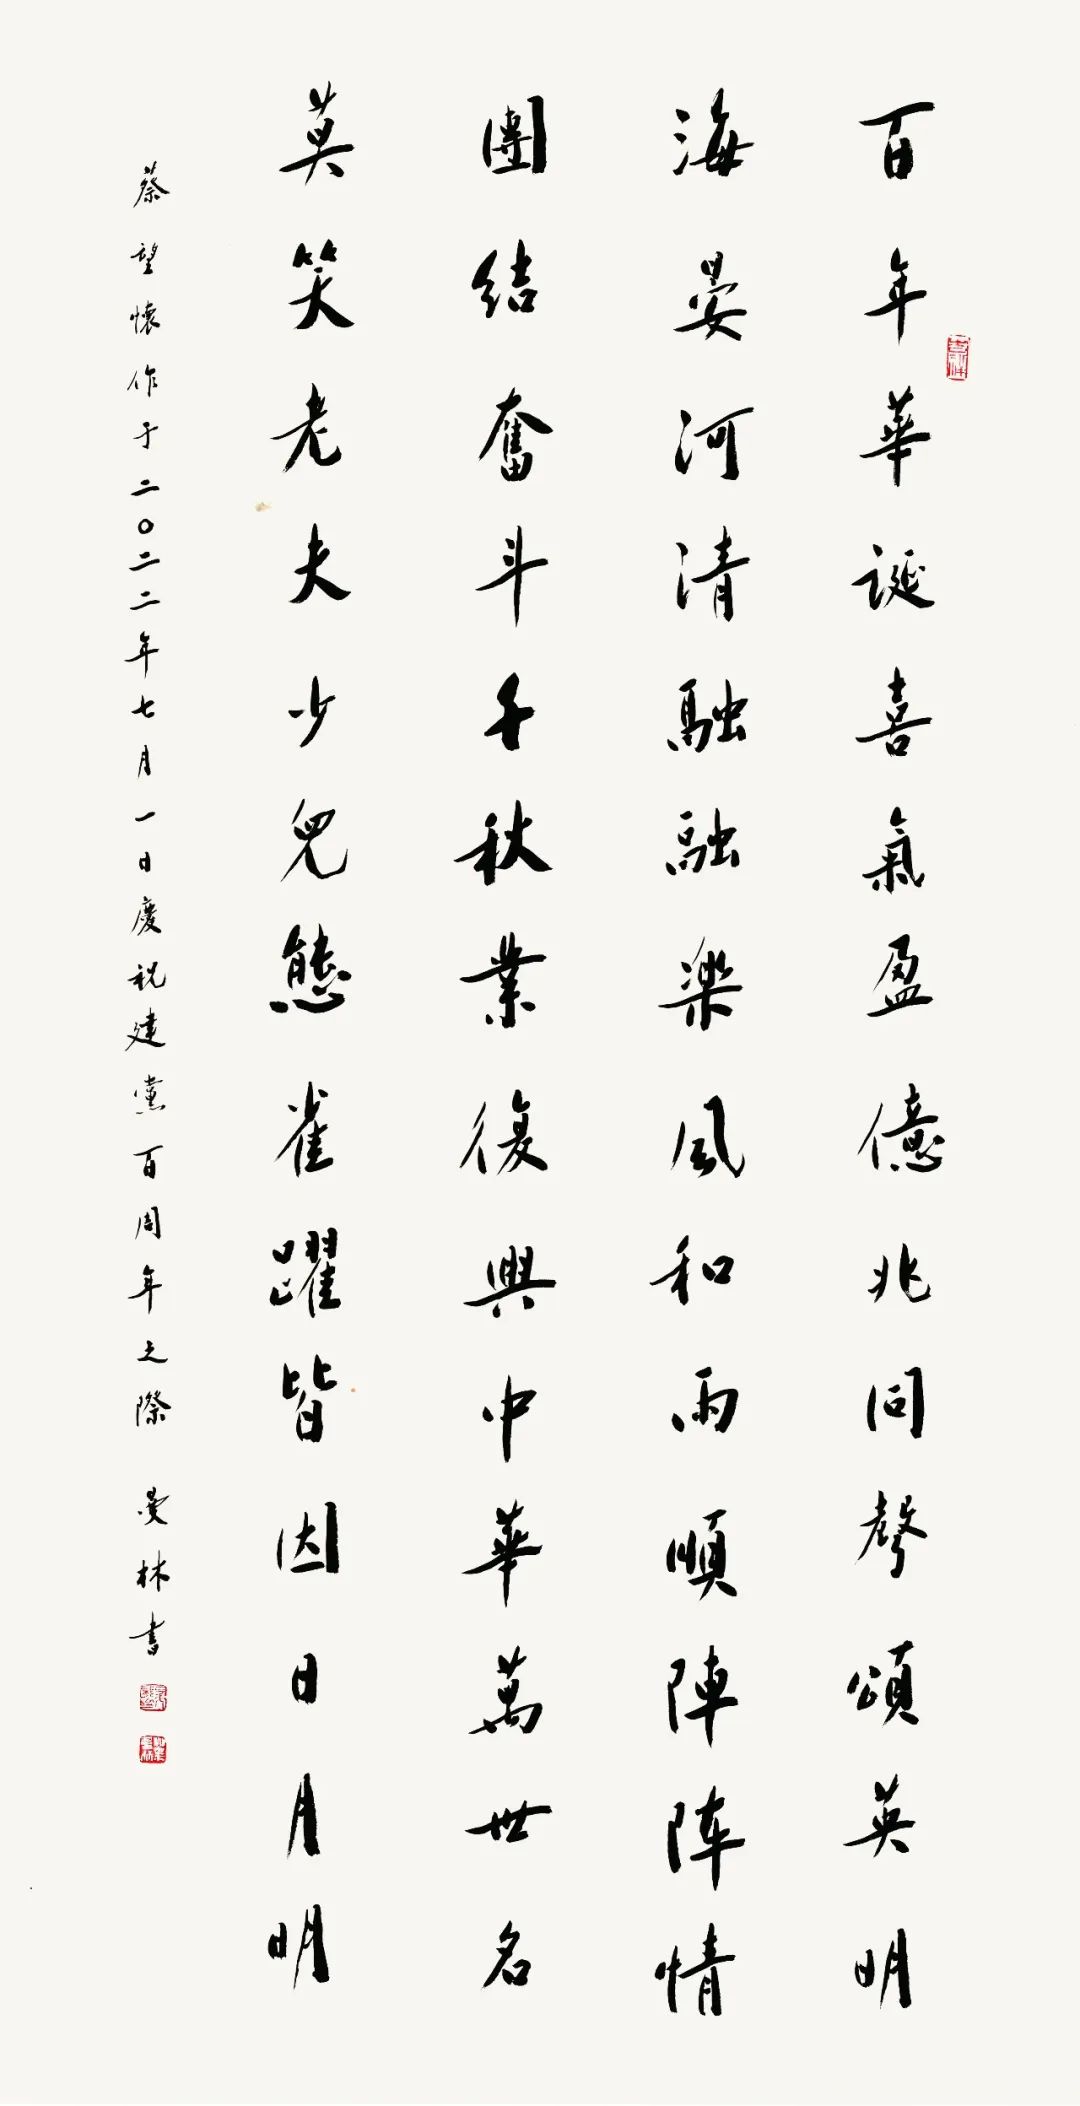 百年華誕喜氣盈億兆同聲頌英明
海晏河清融融樂風和雨順陣阵情
團結奮斗千秋業復興中華萬世名
莫笑老夫少兒態雀躍皆因日月明
蔡望懷作于二〇二二年七月一日慶祝建黨百周年之際 曼林書